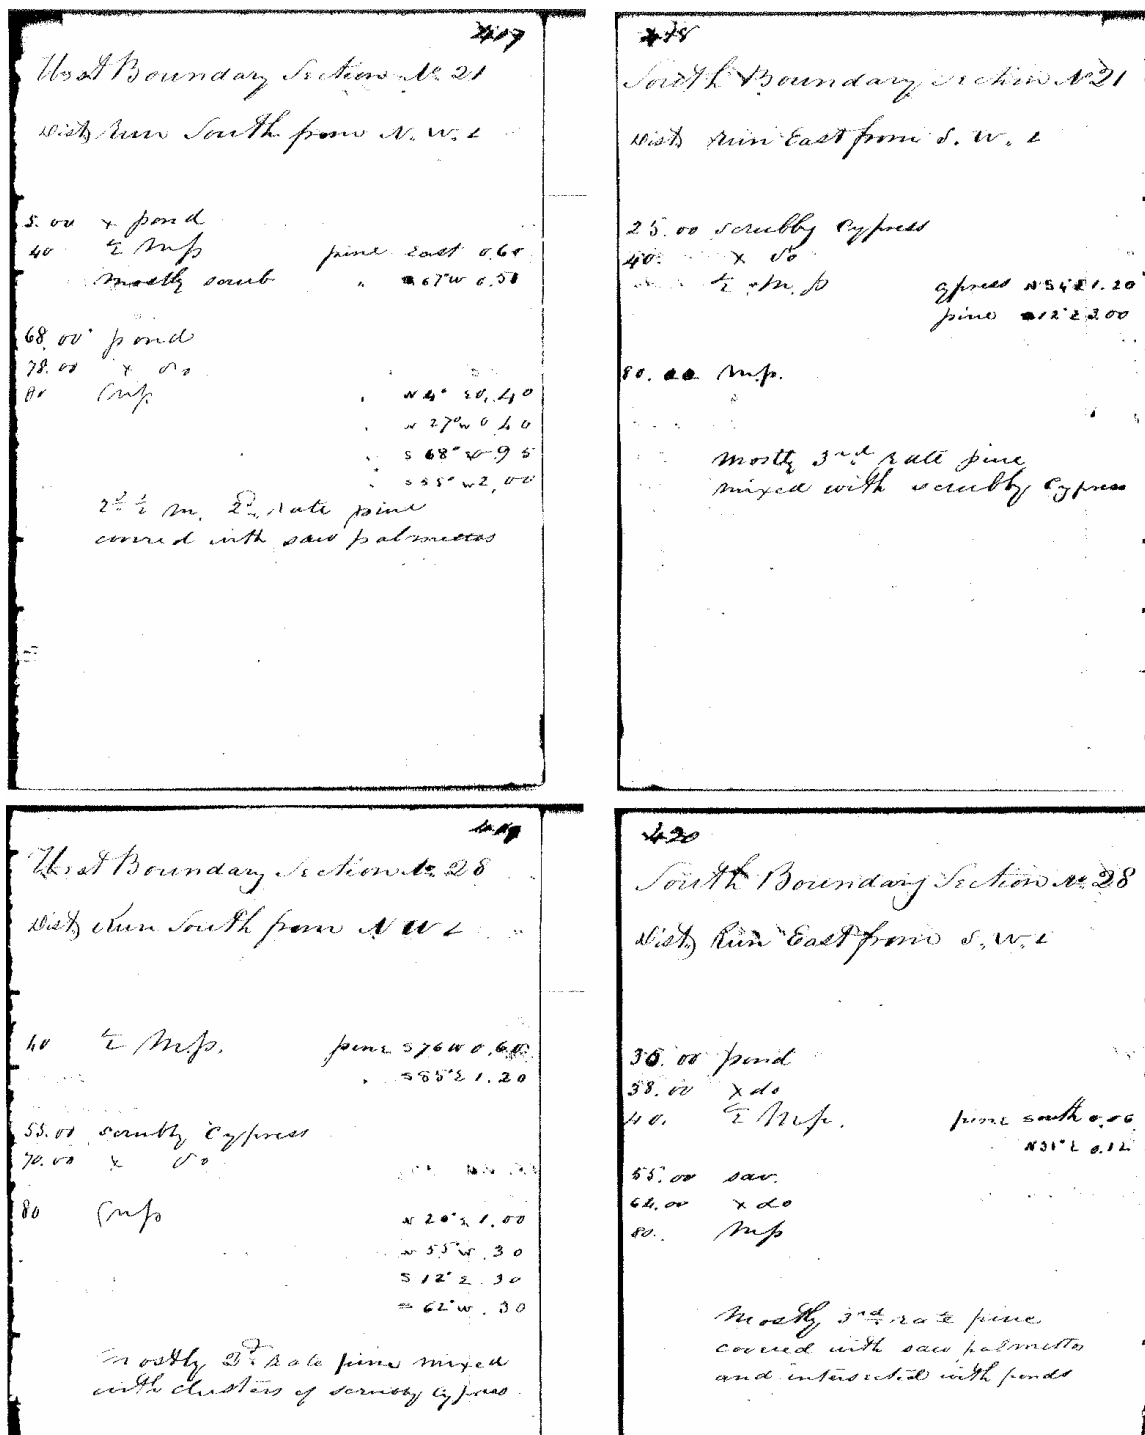 417
West Boundary Section No. 21
Dist, Run South from N. W. c
5.00 x pond
40 ½ M.p pine East 0.60
mostly scrub " 67°W 0.50
68.00 pond
78.00 x do
80 Cmp " N 4° E 0.40
" N 27°W 0.40
" S 68° W 95
" S55°W 2,00
2d ½ m. 2d rate pine
covered with saw palmettos
418
South Boundary Section No 21
Dist, Run East from S. W. c
25.00 scrubby Cypress
40. x do
½ M.p cypress N54E1.20
pine 12°E 3.00
80.00 M.p.
mostly 3rd rate pine
mixed with scrubby Cypress
419
West Boundary Section No. 28
Dist, Run South from N W c
40 ½ M.p. pine S76W 0.60
" S85°E 1.20
55.00 scrubby Cypress
70.00 x do
80 Cmp N 20°E 1.00
N 55°W .30
S 12°E .30
62°W .30
Mostly rate pine mixed
with clusters of scrubby Cypress
420
South Boundary Section No. 28
Dist, Run East from S. W. c
36.00 pond
38.00 x do
40. ½ M.p. pine south 0.06
N31°E 0.12
55.00 sav.
64.00 x do
80. M.p
Mostly 3rd rate pine
covered with saw palmetto
and intersected with ponds